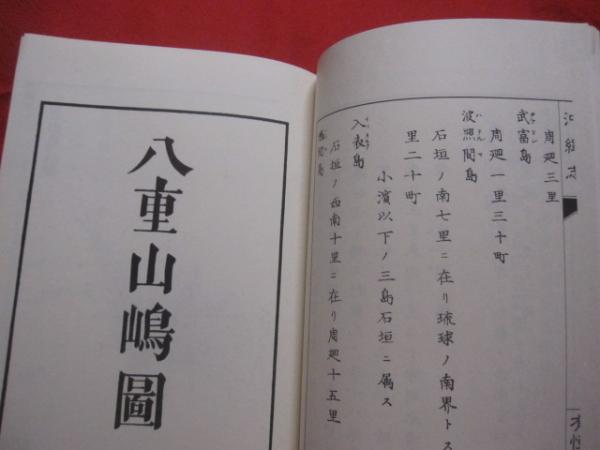 沖縄志
周廻三里
武富島
周廻一里三十町
波照間島
石垣ノ南七里ニ在リ琉球ノ南界トス
里二十町
小濱以下ノ三島石垣ニ属ス
入表島
石垣ノ西南十里ニ在リ周廻十五里
八重山嶋圖